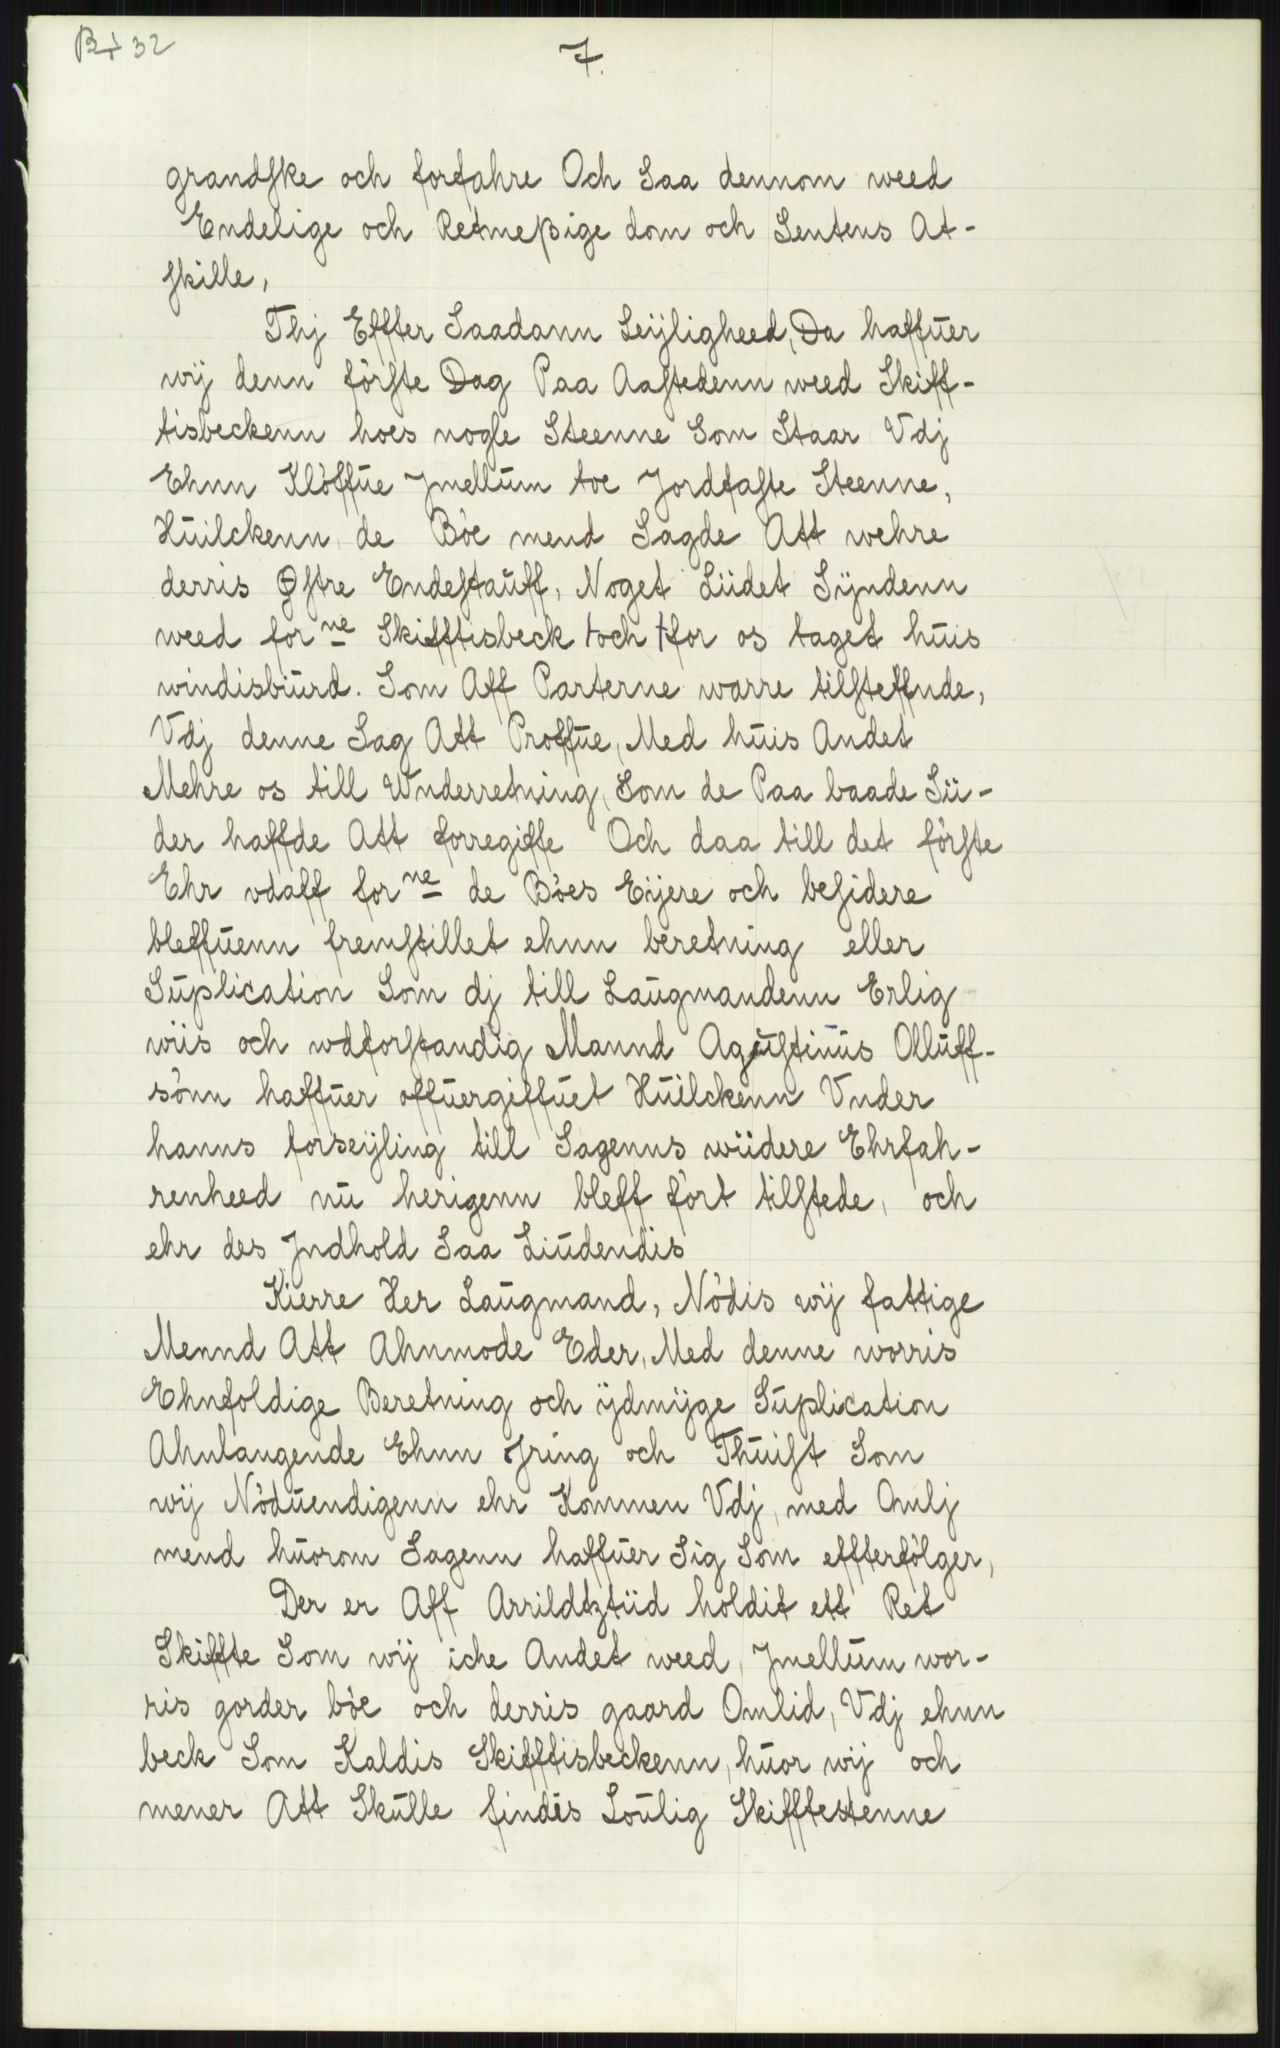 32
7.
grandske och forfahre Och Saa dennom weed
Endelige och Retmeßige dom och Sentens At-
skille,
Thj Effter Saadann Leijligheed, Da haffuer
wij denn förste Dag Paa Aastedenn weed Skiff-
tisbeckenn hoes nogle Steenne Som Staar Vdj
Ehnn Klöffue Jmellum toe Jordfaste Steenne,
Huilckenn de Böe mend Sagde Att wehre
derris Østre Endestauff, Noget Liidet Sijndenn
weed forne Skifftisbeck och for os taget huis
windisbiurd. Som Aff Parterne warre tilsteffnde,
Vdj denne Sag Att Proffue, Med huis Andet
Mehre os till Wnderretning, Som de Paa baade Sii-
der haffde Att forregiffe Och daa till det förste
Ehr vdaff forne de Böes Eijere och besidere
bleffuenn fremstillet ehnn beretning eller
Suplication Som dj till Laugmandenn Erlig
wiis och wdforstandig Mannd Agustinus Olluff-
sönn haffuer offuergiffuet Huilckenn Vnder
hanns forseijling till Sagenns wiidere Ehrfah-
renheed nu herigenn bleff fört tilstede, och
ehr des Jndhold Saa Liudendis
Kierre Her Laugmand, Nödis wij fattige
Mennd Att Ahnmode Eder, Med denne worris
Ehnfoldige Beretning och ijdmijge Suplication
Ahnlangende Ehnn Jring och Thuist Som
wij Nöduendigenn ehr Kommen Vdj, med Omlj
mend huorom Sagenn haffuer Sig Som effterfölger,
Der er Aff Arrildtztiid holdit ett Ret
Skiffte Som wij iche Andet weed, Jmellum wor-
ris gorder böe och derris gaard Omlid, Vdj ehnn
beck Som Kaldis Skifftisbeckenn, huor wij och
mener Att Skulle findes Loulig Skifftestenne